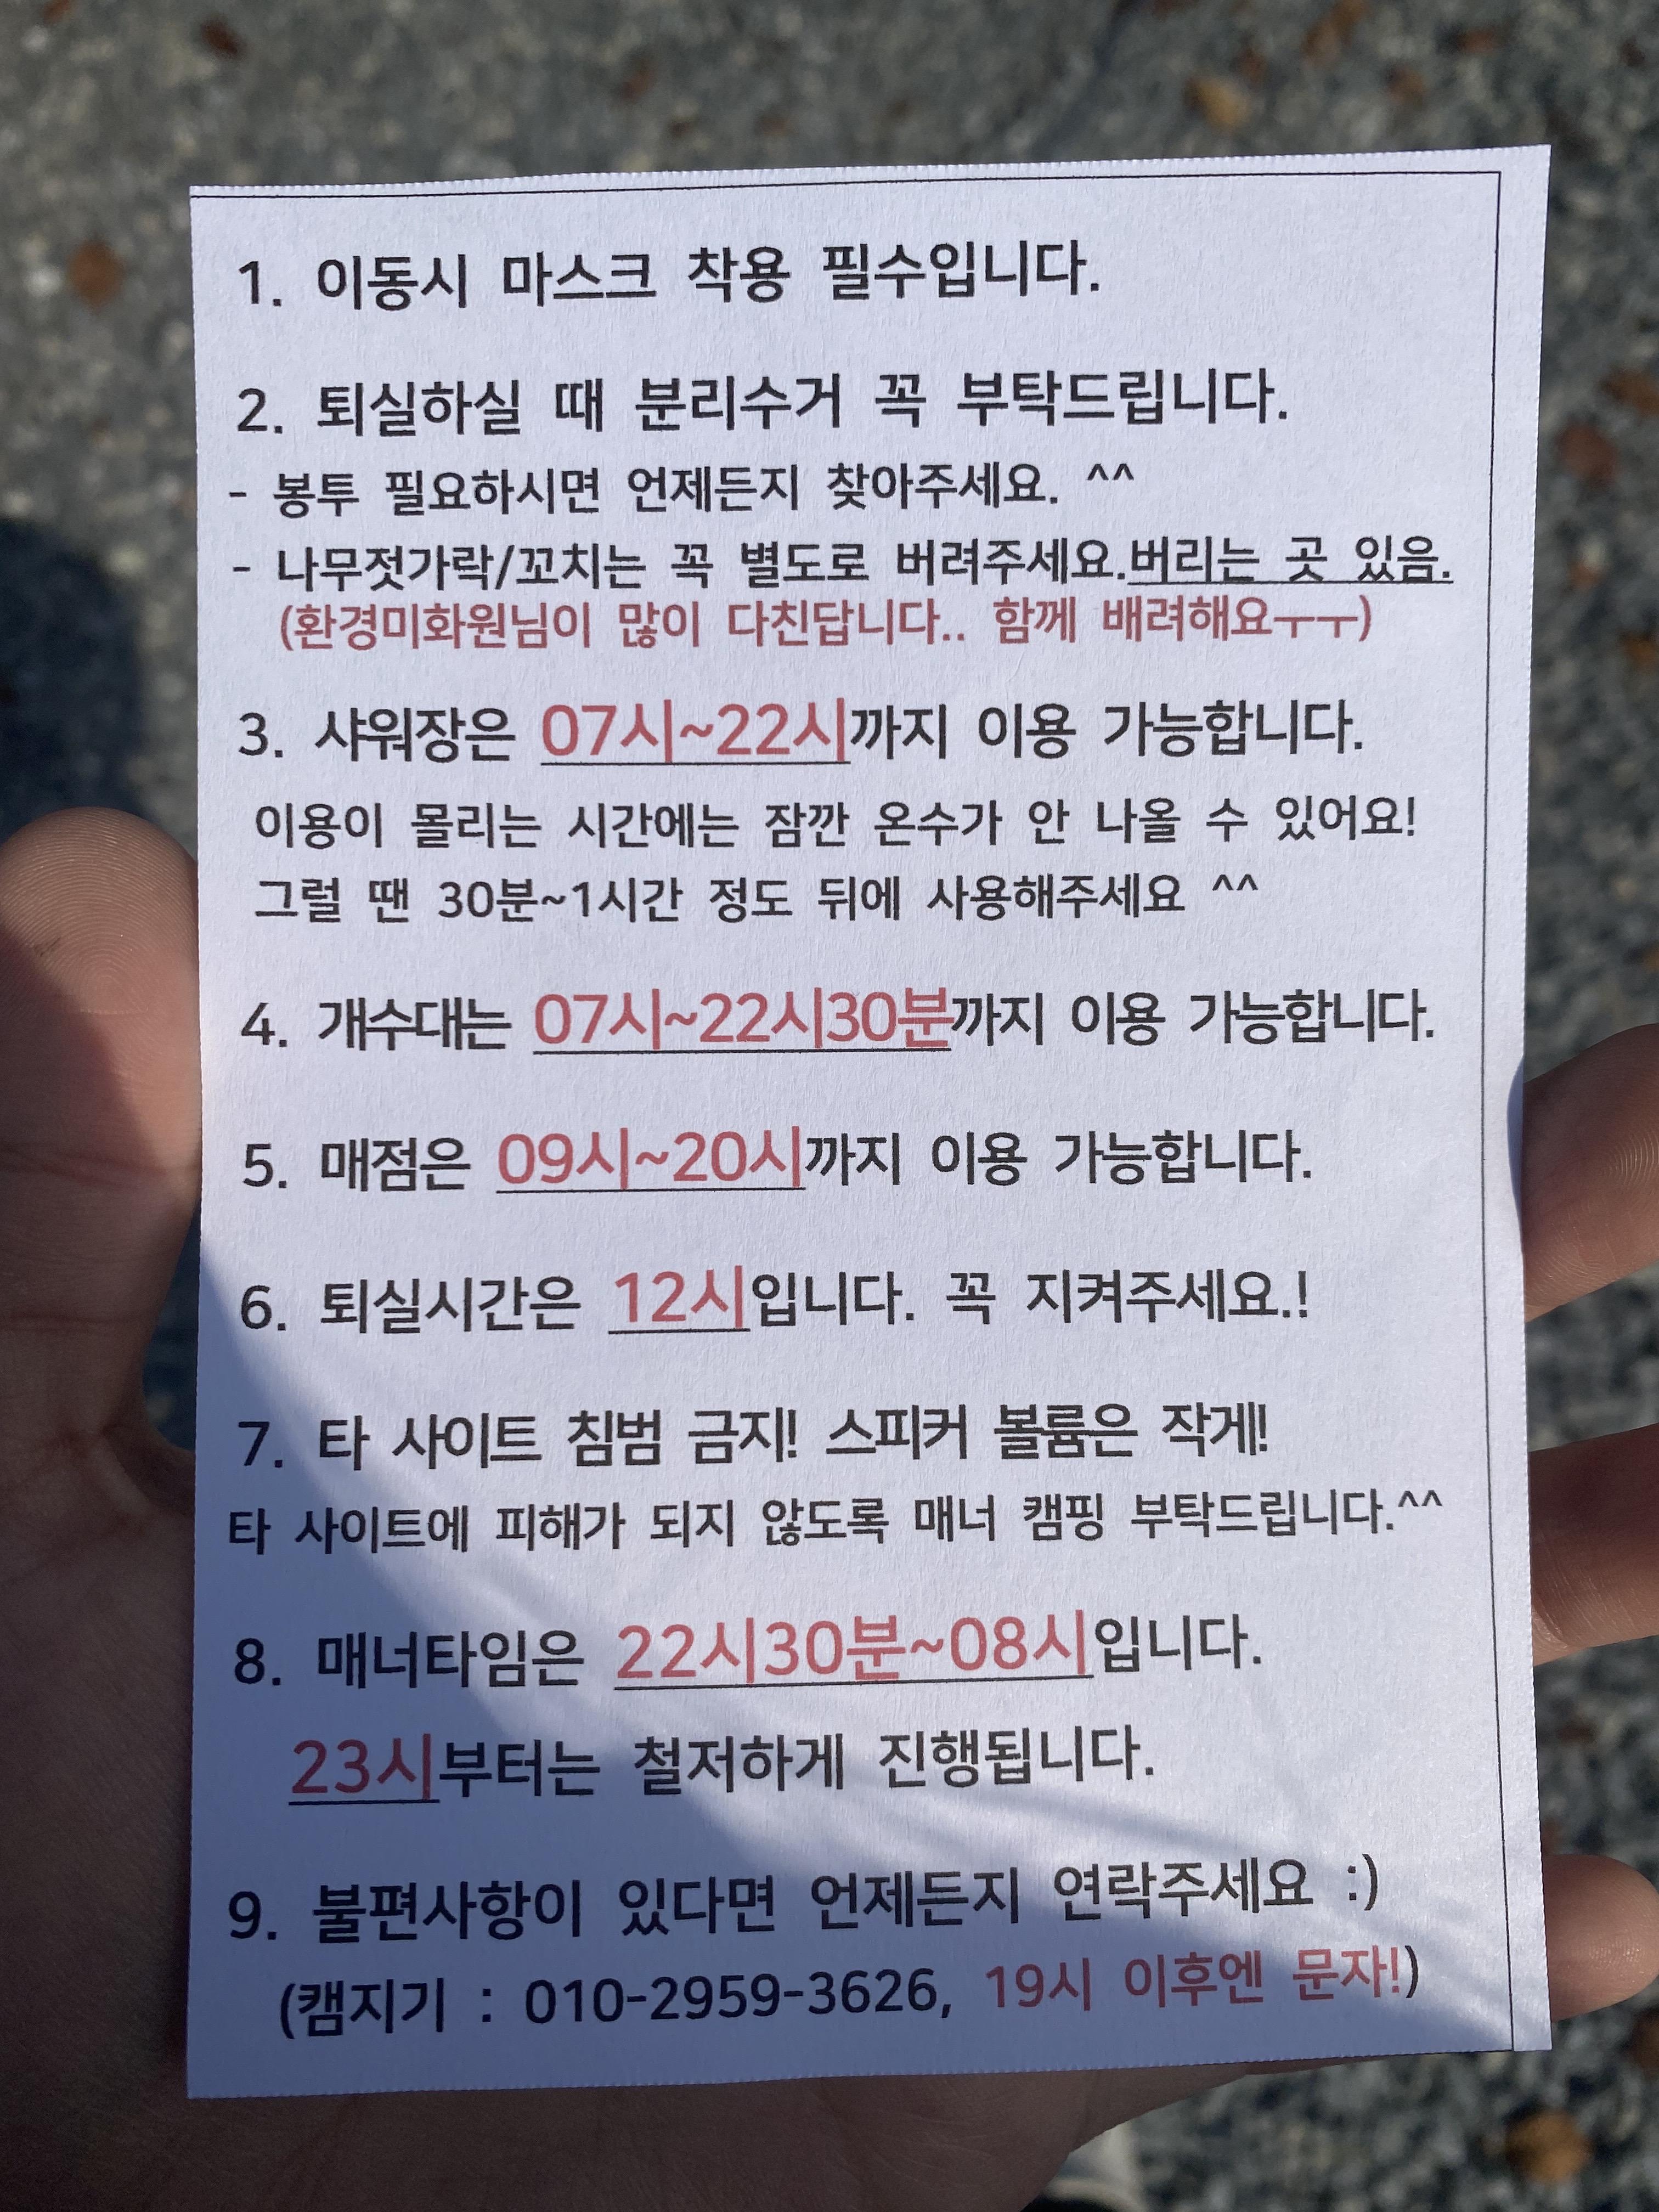 1. 이동시 마스크 착용 필수입니다.
2. 퇴실하실 때 분리수거 꼭 부탁드립니다.
- 봉투 필요하시면 언제든지 찾아주세요. ^^
- 나무젓가락/꼬치는 꼭 별도로 버려주세요.버리는 곳 있음.
(환경미화원님이 많이 다친답니다.. 함께 배려해요ㅜㅜ)
3. 샤워장은 07시~22시까지 이용 가능합니다.
이용이 몰리는 시간에는 잠깐 온수가 안 나올 수 있어요!
그럴 땐 30분~1시간 정도 뒤에 사용해주세요 ^^
4. 개수대는 07시~22시30분까지 이용 가능합니다.
5. 매점은 09시~20시까지 이용 가능합니다.
6. 퇴실시간은 12시입니다. 꼭 지켜주세요.!
7. 타 사이트 침범 금지! 스피커 볼륨은 작게!
타 사이트에 피해가 되지 않도록 매너 캠핑 부탁드립니다.^^
8. 매너타임은 22시30분~08시입니다.
23시부터는 철저하게 진행됩니다.
9. 불편사항이 있다면 언제든지 연락주세요 :)
(캠지기 : 010-2959-3626, 19시 이후엔 문자!)